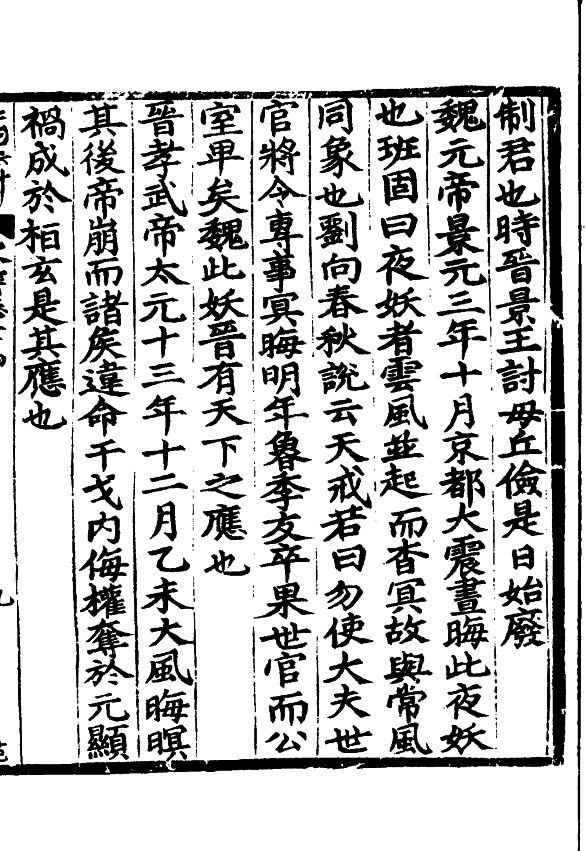 制君也時晉景王討毋丘儉是日始廢
魏元帝景元三年十月京都大震晝晦此夜妖
也班固曰夜妖者雲風並起而杳冥故與常風
同象也劉向春秋說云天戒若曰勿使大夫世
官將令專事冥晦明年魯季友卒果世官而公
室卑矣魏此妖晉有天下之應也
晉孝武帝太元十三年十二月乙未大風晦暝
其後帝崩而諸侯違命干戈內侮權奪於元顯
禍成於桓玄是其應也